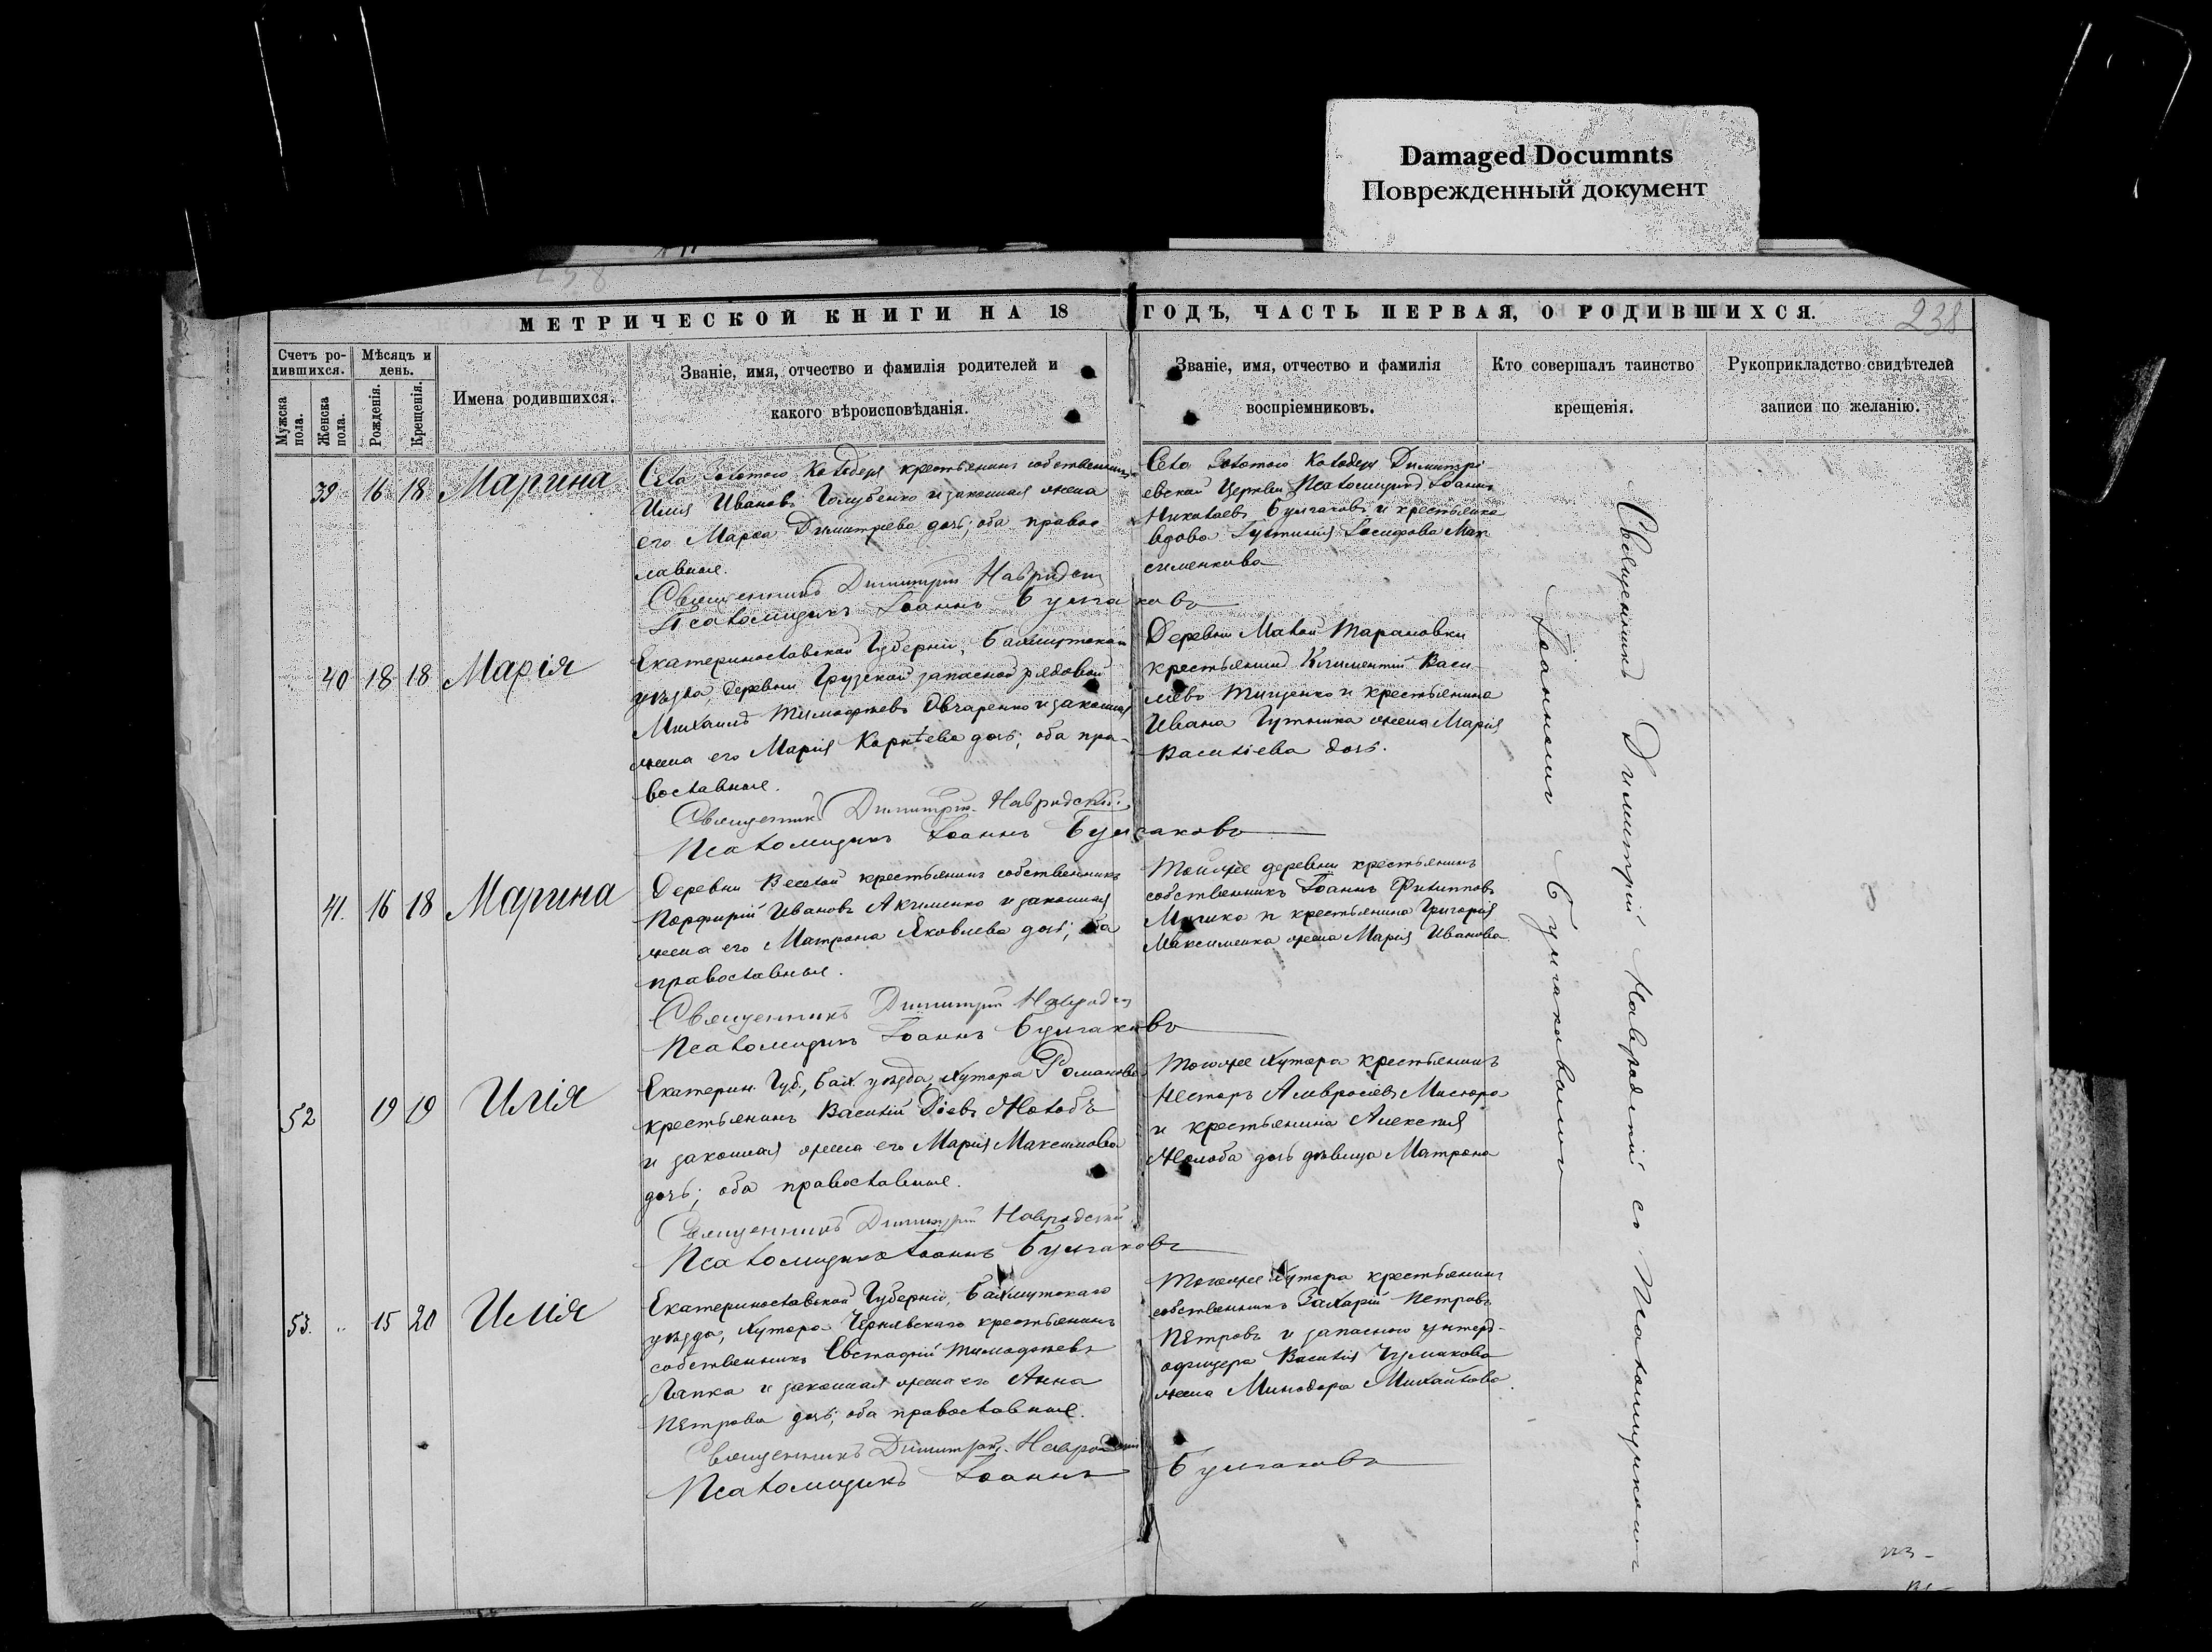 Damaged Documnts
Поврежденный документ
238
МЕТРИЧЕСКОЙ КНИГИ НА 18 ГОДЪ, ЧАСТЬ ПЕРВАЯ, О РОДИВШИХСЯ.
Счетъ ро-
дившихся.
Мужска пола.
Женска пола.
Мѣсяцъ и
день.
Рожденія.
Крещенія.
Имена родившихся.
Званіе, имя, отчество и фамилія родителей и
какого вѣроисповѣданія.
Званіе, имя, отчество и фамилія
воспріемниковъ.
Кто совершалъ таинство
крещенія.
Рукоприкладство свидѣтелей
записи по желанію.
39 16 18 Марина
Села Золотого Колодезя крестьянинъ собственникъ
Илія Ивановъ Голубенко и законная жена
его Марѳа Димитріева дочь; оба право
славные.
Священникъ Димитрій
Псаломщикъ Іоаннъ Булгаковъ
Села Золотого Колодезя Димитрі
евской Церкви Псаломщикъ Іоаннъ
Николаевъ Булгаковъ и крестьянка
вдова Іустинія Іосифова Мак
сименкова
40 18 18 Марія
Екатеринославской Губерніи, Бахмутскаго
уѣзда, деревни Грузской запасной рядовой
Михаилъ Тимофѣевъ Овчаренко и законная
жена его Марія Корнѣева дочь; оба пра-
вославные.
Священникъ Димитрій
Псаломщикъ Іоаннъ Булгаковъ
Деревни Малой Тарановки
крестьянинъ Климентій Васи-
льевъ Тищенко и крестьянина
Ивана жена Марія
Василіева дочь.
41. 16 18 Марина
Деревни Веселой крестьянинъ собственникъ
Порфирій Ивановъ Акименко и законная
жена его Матрона Яковлева дочь; оба
православные.
Священникъ Димитрій
Псаломщикъ Іоаннъ Булгаковъ
Той же деревни крестьянинъ
собственникъ Іоаннъ Филипповъ
и крестьянина Григорія
Максименка жена Марія Иванова
52 19 19 Илія
Екатерин. Губ., Бах. уѣзда, хутора Романова
крестьянинъ Василій Діевъ Жолобъ
и законная жена его Марія Максимова
дочь; оба православные.
Священникъ Димитрій
Псаломщикъ Іоаннъ Булгаковъ
Того же хутора крестьянинъ
Несторъ Амвросіевъ Мисюра
и крестьянина Алексѣя
Жолоба дочь дѣвица Матрона
53. 15 20 Илія
Екатеринославской Губерніи, Бахмутскаго
уѣзда, хутора Чернявскаго крестьянинъ
собственникъ Евстафій Тимофѣевъ
Лапка и законная жена его Анна
Петрова дочь; оба православные.
Священникъ Димитрій
Псаломщикъ Іоаннъ Булгаковъ
Того же хутора крестьянинъ
собственникъ Захарій Петровъ
Петровъ и запасного унтеръ-
офицера Василія Чумакова
жена Минодора Михайлова.
Священникъ Димитрій съ Псаломщикомъ
Іоанномъ Булгаковымъ